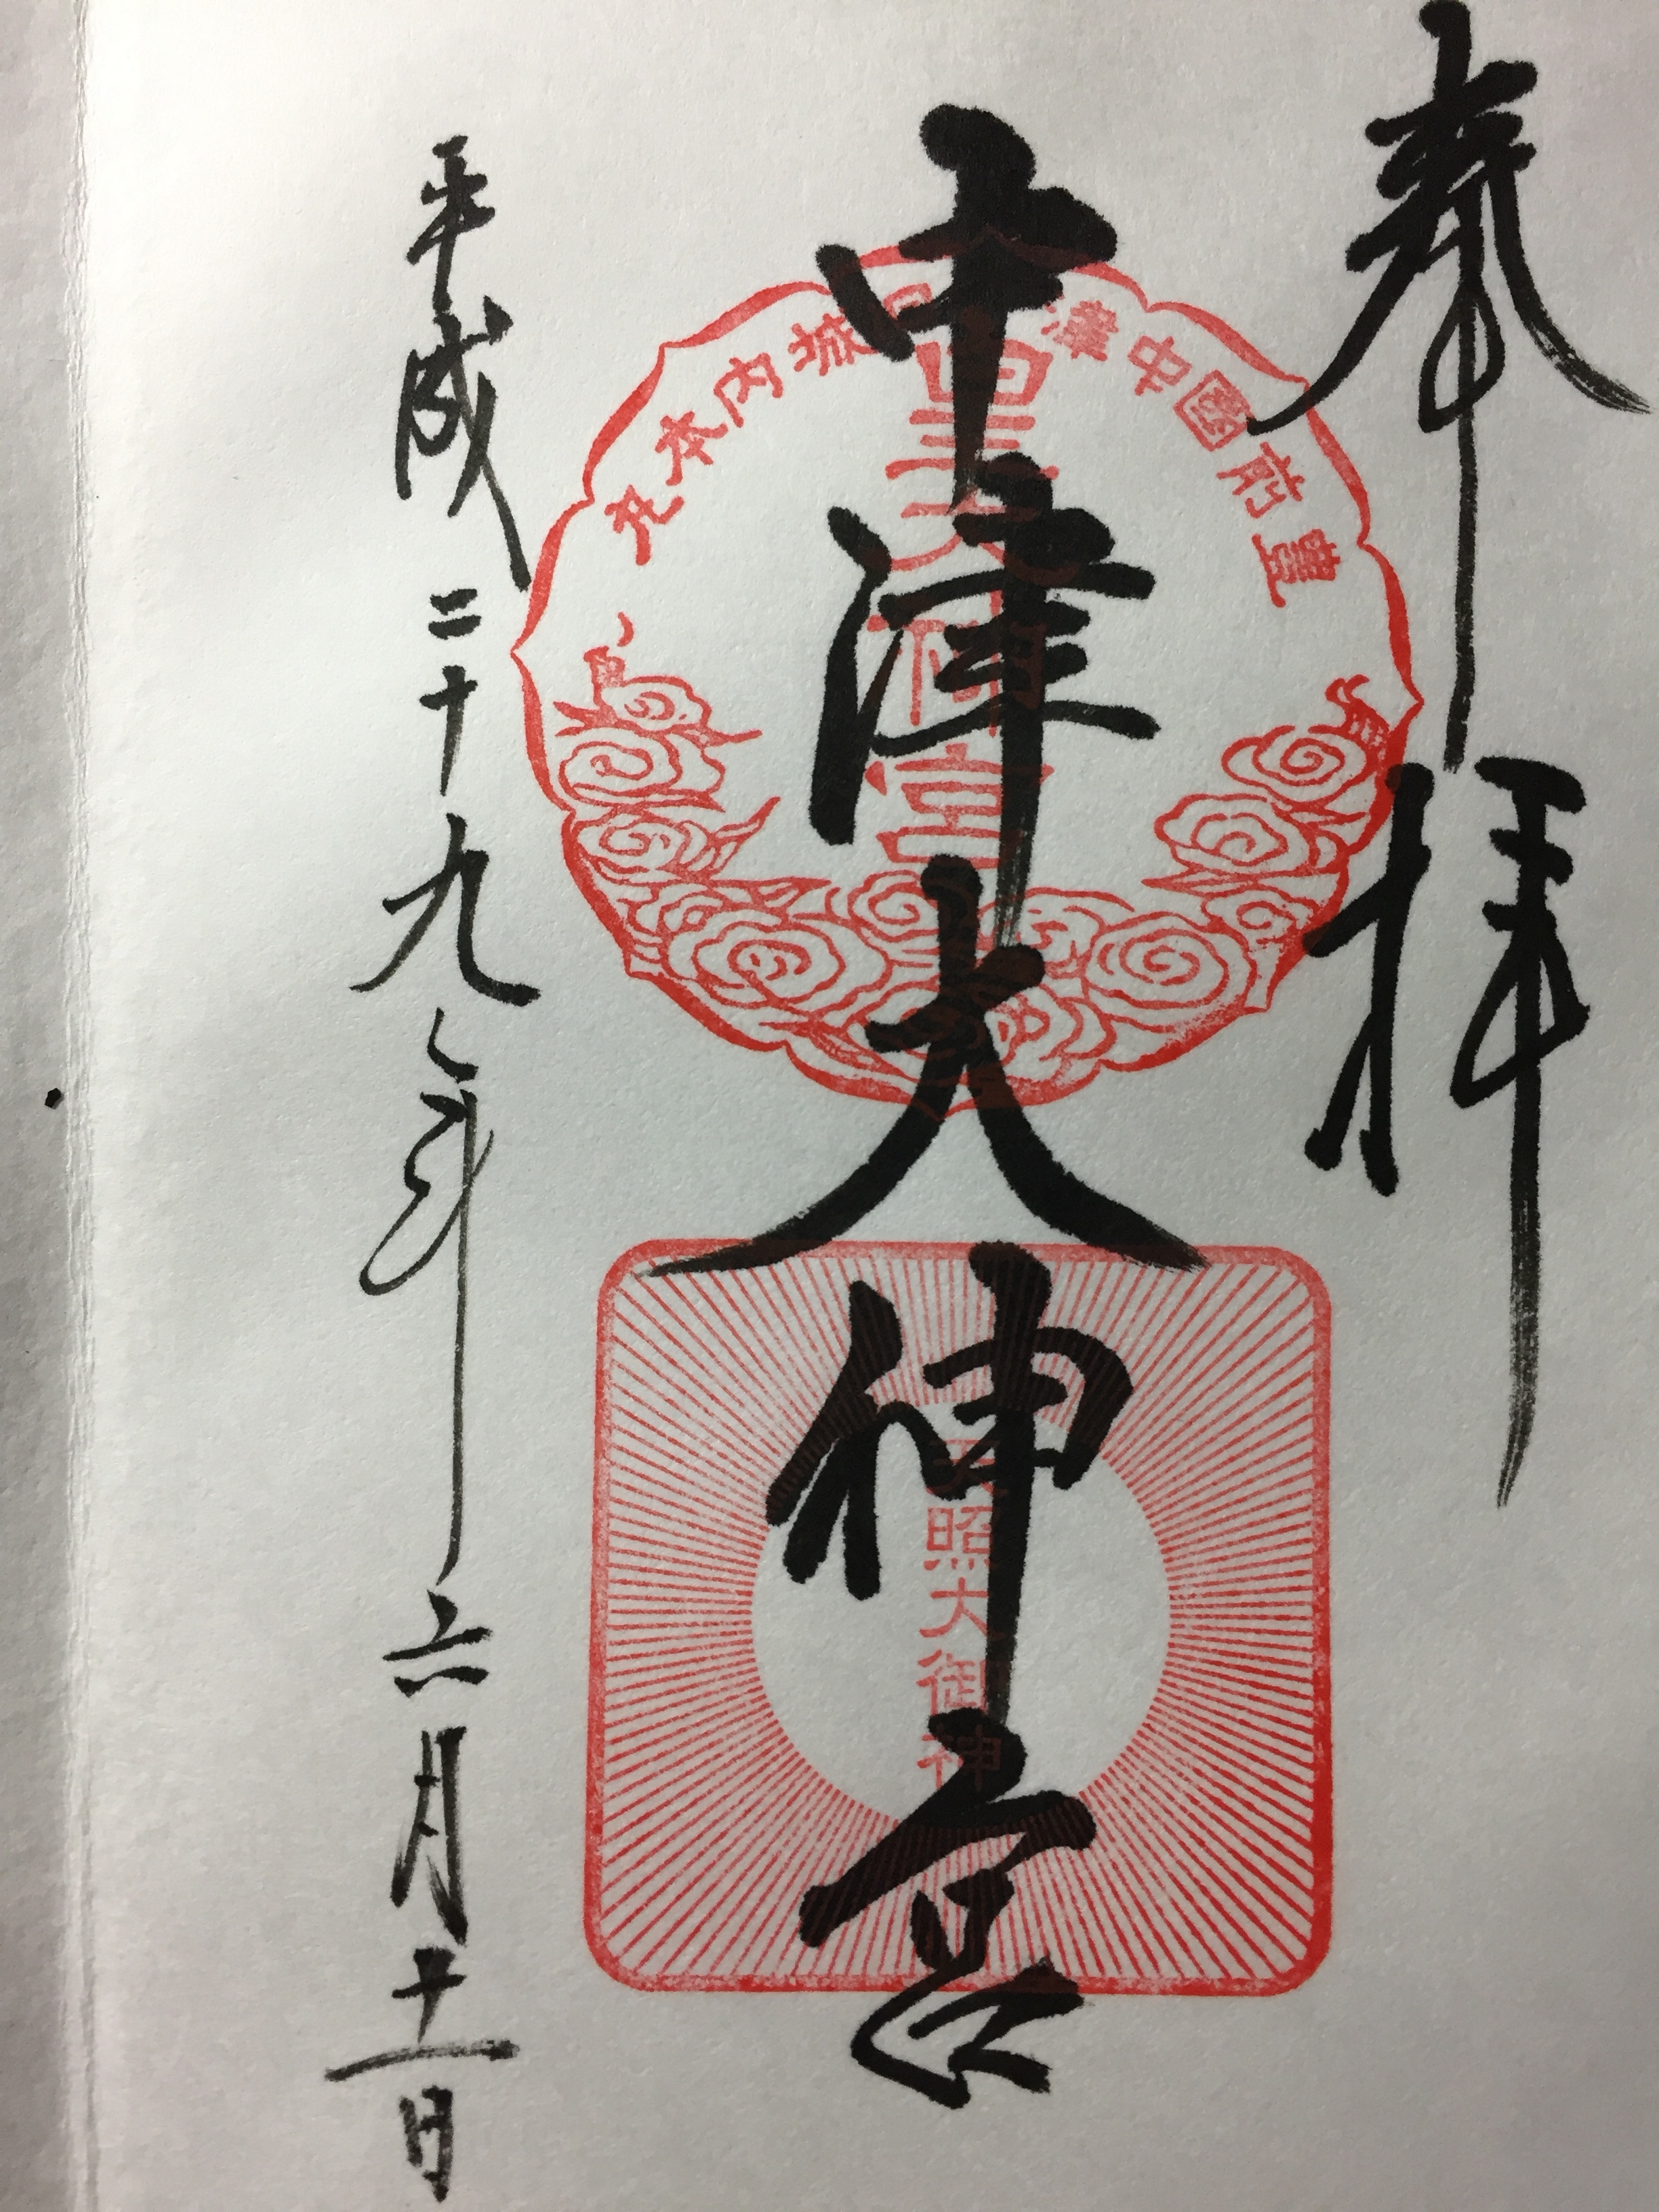 奉拝
豊前國中津
城内本丸
中津大神宮
皇大神宮
照大御神
平成二十九年六月十一日